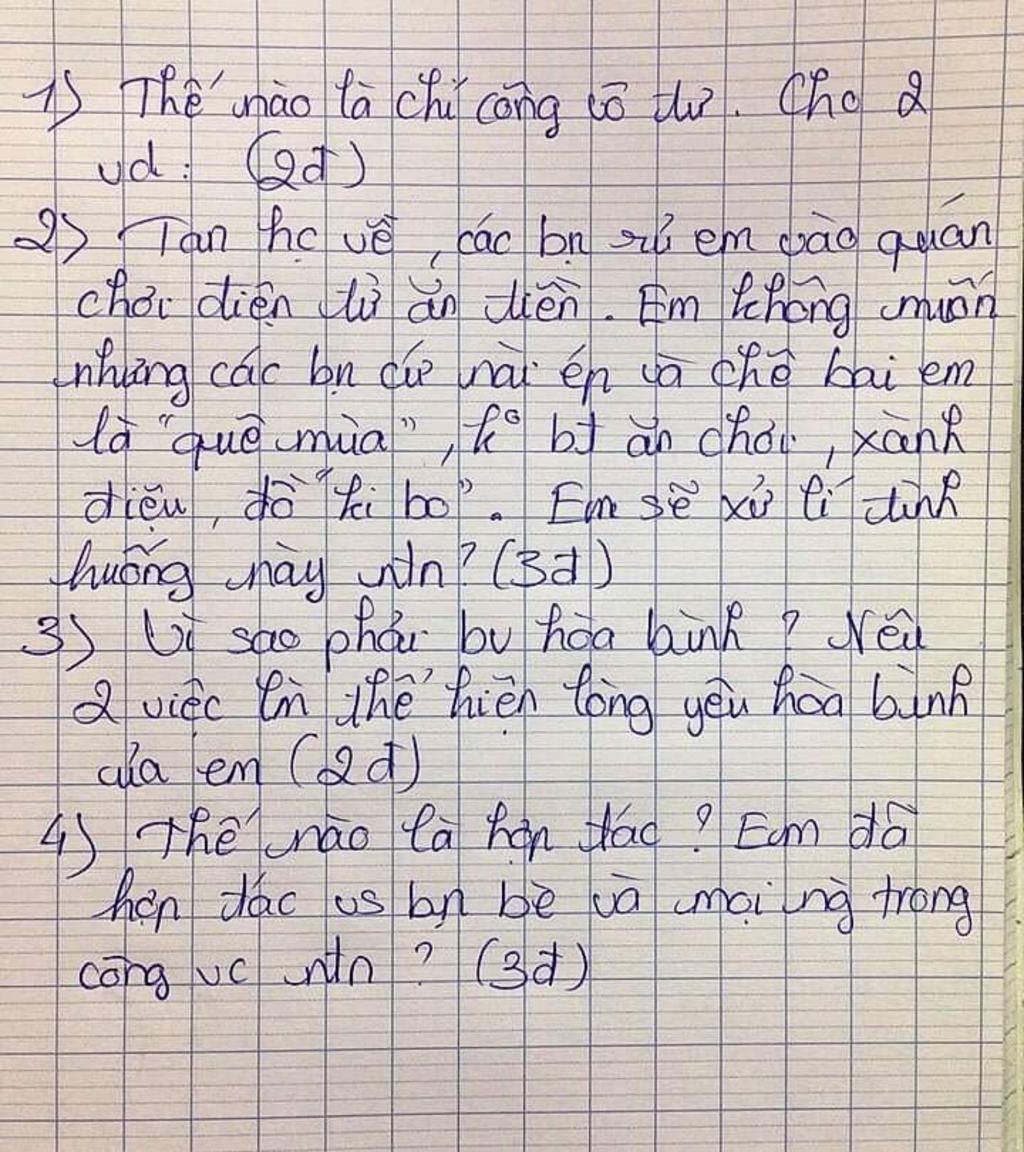 1) Thế nào là chí công vô tư. Cho 2
vd: (2đ)
2) Tan hc về, các bn rủ em vào quán
chơi điện tử ăn tiền. Em không muốn
nhưng các bn cứ nài ép và chê bai em
là "quê mùa", k° bt ăn chơi, xành
điệu, đồ "ki bo". Em sẽ xử lí tình
huống này ntn? (3đ)
3) Vì sao phải bv hòa bình? Nêu
2 việc lm thể hiện lòng yêu hòa bình
của em (2đ)
4) Thế nào là hợp tác? Eem đã
hợp tác vs bạn bè và mọi ng trong
công vc ntn? (3đ)